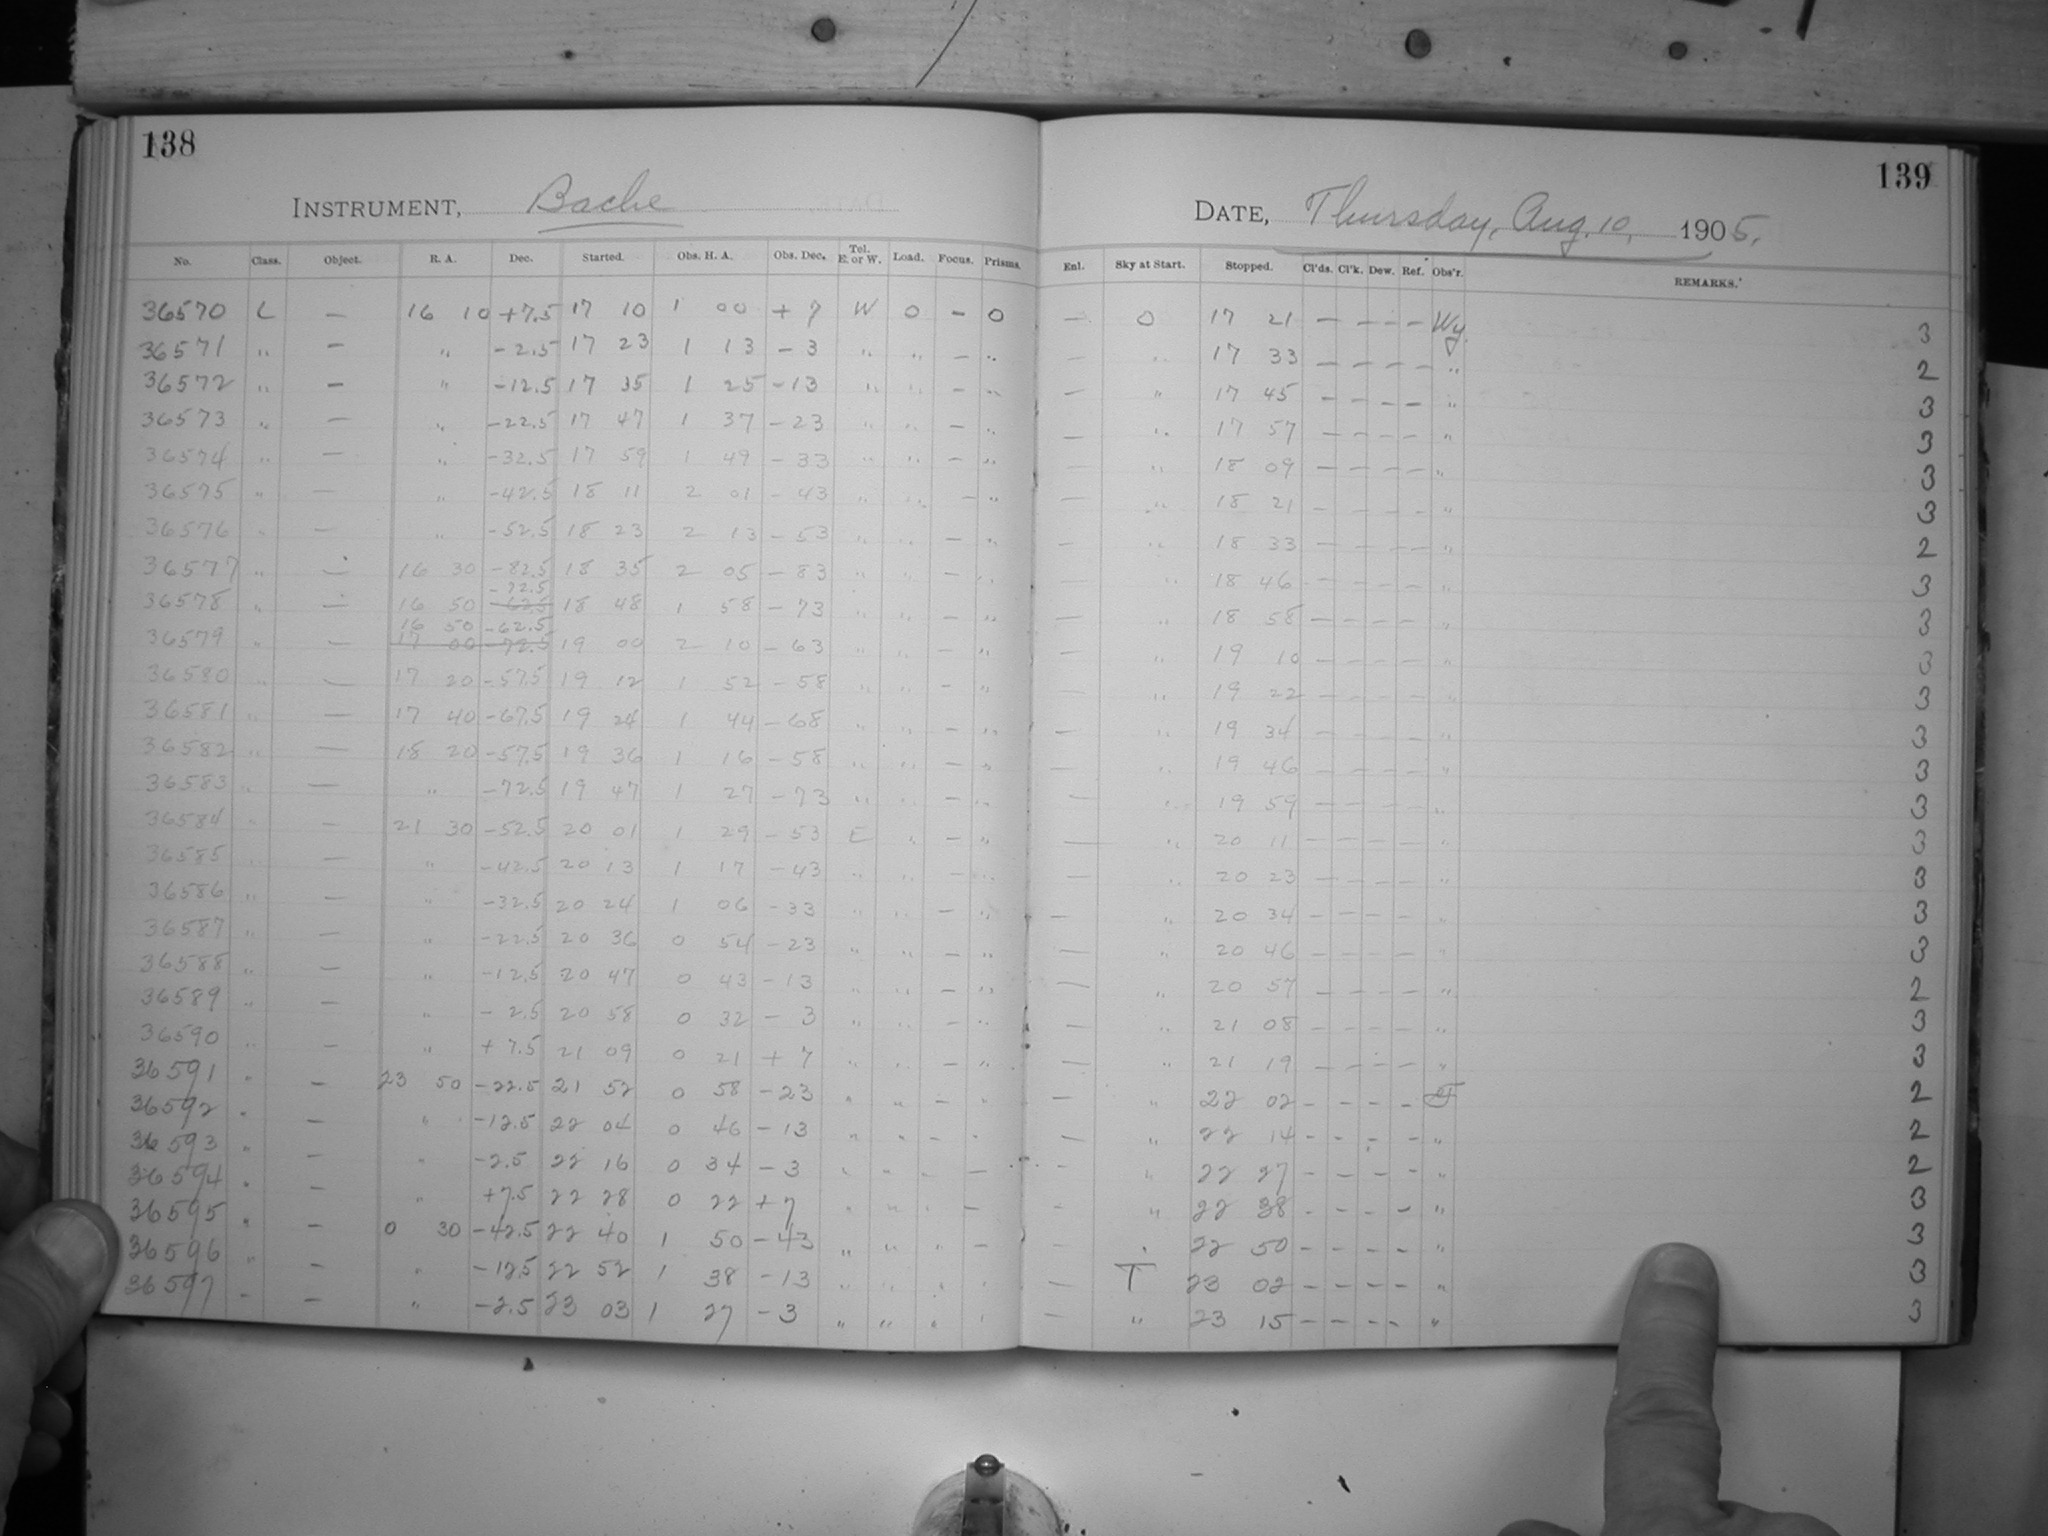 138
INSTRUMENT, Bache
No. Class. Object. R. A. Dec. Started. Obs. H. A. Obs. Dec. Tel. E. or W. Load. Focus. Prisms.
36570 L — 16 10 +7.5 17 10 1 00 +7 W 0 – 0
36571 " — " -2.5 17 23 1 13 -3 " " – "
36572 " — " -12.5 17 35 1 25 -13 " " – "
36573 " — " -22.5 17 47 1 37 -23 " " – "
36574 " — " -32.5 17 59 1 49 -33 " " – "
36575 " — " -42.5 18 11 2 01 -43 " " – "
36576 " — " -52.5 18 23 2 13 -53 " " – "
36577 " — 16 30 -82.5 18 35 2 05 -83 " " – "
36578 " — 16 50 -72.5 -62.5 18 48 1 58 -73 " " – "
36579 " — 16 50 17 00 -62.5 -72.5 19 00 2 10 -63 " " – "
36580 " — 17 20 -57.5 19 12 1 52 -58 " " – "
36581 " — 17 40 -67.5 19 24 1 44 -68 " " – "
36582 " — 18 20 -57.5 19 36 1 16 -58 " " – "
36583 " — " -72.5 19 47 1 27 -73 " " – "
36584 " — 21 30 -52.5 20 01 1 29 -53 E " – "
36585 " — " -42.5 20 13 1 17 -43 " " – "
36586 " — " -32.5 20 24 1 06 -33 " " – "
36587 " — " -22.5 20 36 0 54 -23 " " – "
36588 " — " -12.5 20 47 0 43 -13 " " – "
36589 " — " -2.5 20 58 0 32 -3 " " – "
36590 " — " +7.5 21 09 0 21 +7 " " – "
36591 " — 23 50 -22.5 21 52 0 58 -23 " " – "
36592 " — " -12.5 22 04 0 46 -13 " " – "
36593 " — " -2.5 22 16 0 34 -3 " " " –
36594 " — " +7.5 22 28 0 22 +7 " " " –
36595 " — 0 30 -42.5 22 40 1 50 -43 " " " –
36596 " — " -12.5 22 52 1 38 -13 " " " "
36597 " — " -2.5 23 03 1 27 -3 " " " "
139
DATE, Thursday, Aug. 10, 1905.
Enl. Sky at Start. Stopped. Cl'ds. Cl'k. Dew. Ref. Obs'r. REMARKS.
— 0 17 21 — — — — Wy. 3
— " 17 33 — — — — " 2
— " 17 45 — — — — " 3
— " 17 57 — — — — " 3
— " 18 09 — — — — " 3
— " 18 21 — — — — " 3
— " 18 33 — — — — " 2
— " 18 46 — — — — " 3
— " 18 58 — — — — " 3
— " 19 10 — — — — " 3
— " 19 22 — — — — " 3
— " 19 34 — — — — " 3
— " 19 46 — — — — " 3
— " 19 59 — — — — " 3
— " 20 11 — — — — " 3
— " 20 23 — — — — " 3
— " 20 34 — — — — " 3
— " 20 46 — — — — " 3
— " 20 57 — — — — " 2
— " 21 08 — — — — " 3
— " 21 19 — — — — " 3
— " 22 02 — — — — 2
— " 22 14 — — — — " 2
— " 22 27 — — — — " 2
— " 22 38 — — — — " 3
— " 22 50 — — — — " 3
— T 23 02 — — — — " 3
— " 23 15 — — — — " 3